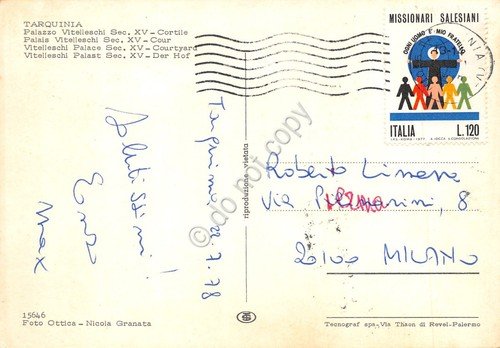 TARQUINIA
Palazzo Vitelleschi Sec. XV - Cortile
Palais Vitelleschi Sec. XV - Cour
Vitelleschi Palace Sec. XV - Courtyard
Vitelleschi Palast Sec. XV - Der Hof
MISSIONARI SALESIANI
OGNI UOMO È MIO FRATELLO
ITALIA L.120
Tarquinia 22.7.78
Salutissimi!
Max
Roberto
Via 8
20100 MILANO
riproduzione vietata
©do not copy
15646
Foto Ottica - Nicola Granata
Tecnograf spa - Via Thaon di Revel - Palermo